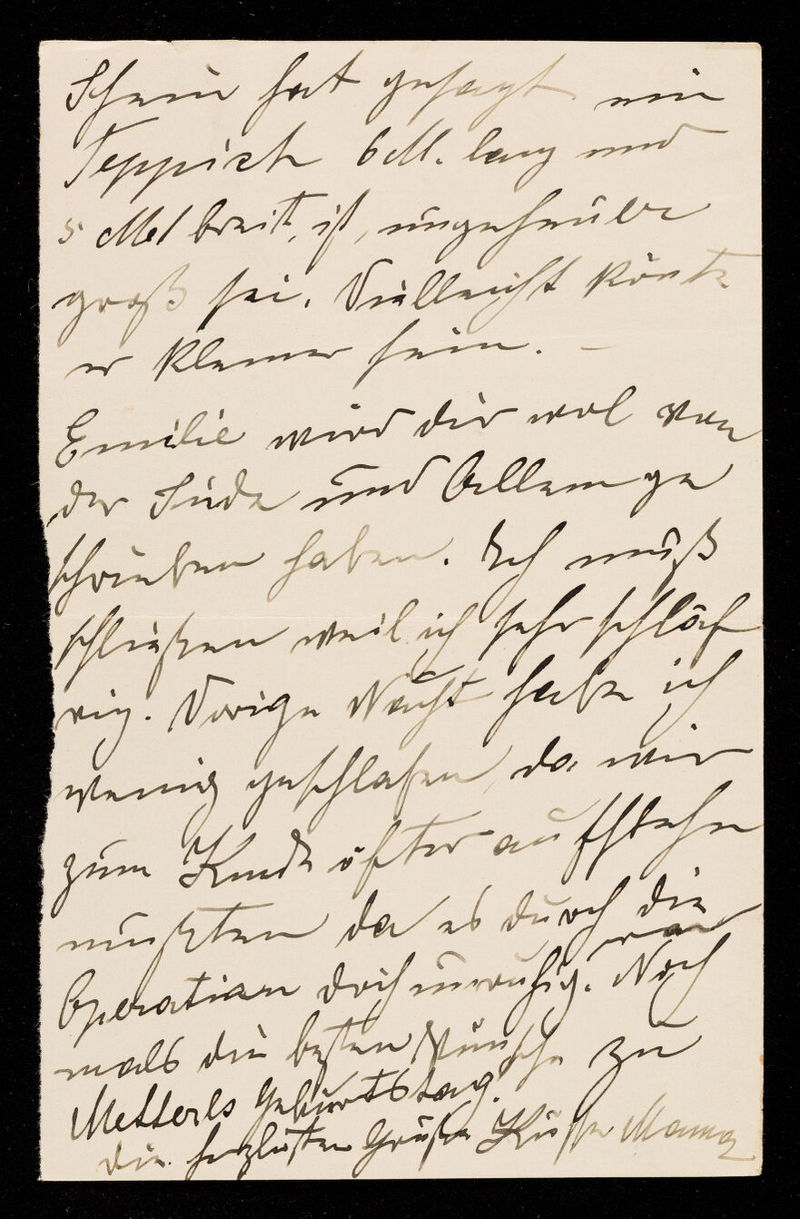 hat gesagt ein
Teppich 6 M. lang und
5 Met breit, ist, ungeheuer
groß sei. Vielleicht könte
er kleiner sein. –
Emilie wird dir wol von
der und Allem ge
schrieben haben. Ich muß
schließen weil ich sehr schläf
rig. Vorige Nacht habe ich
wenig geschlafen, da wir
zum Kinde öfter aufstehn
mußten da es durch die
Operation doch unruhig war. Noch
mals die besten Wünsche zu
Geburtstag.
die herzlichsten Grüße Küsse Mama